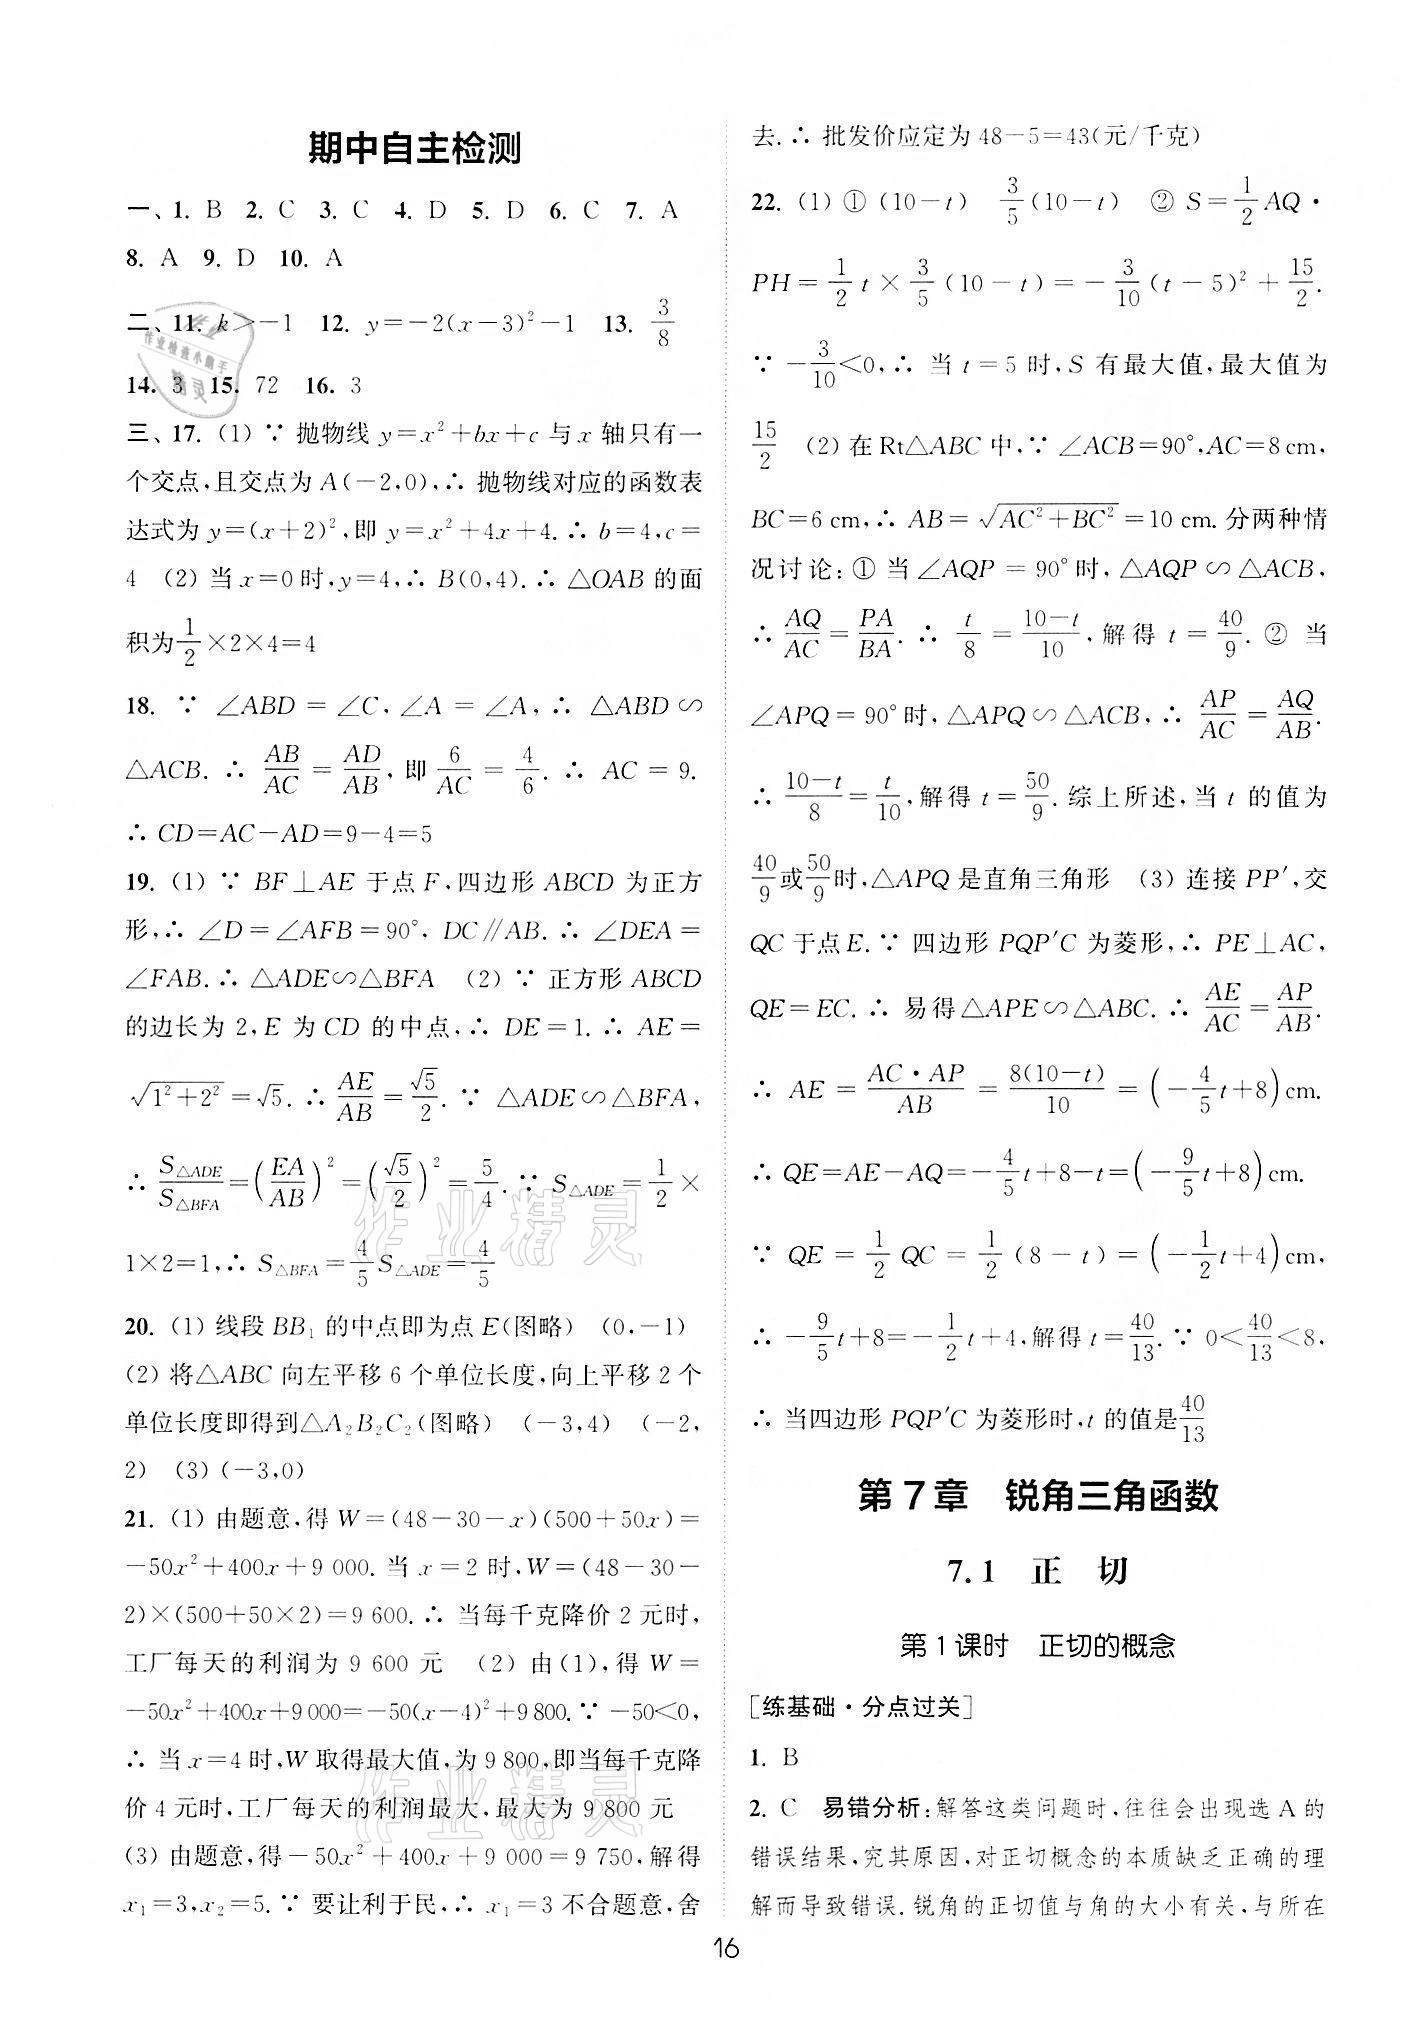 期中自主检测
一、1. B 2. C 3. C 4. D 5. D 6. C 7. A
8. A 9. D 10. A
二、11. k>-1 12. y=-2(x-3)²-1 13. 3/8
14. 3 15. 72 16. 3
三、17. (1) ∵ 抛物线 y=x²+bx+c 与 x 轴只有一
个交点,且交点为 A(-2,0),∴ 抛物线对应的函数表
达式为 y=(x+2)²,即 y=x²+4x+4.∴ b=4,c=
4 (2) 当 x=0 时,y=4,∴ B(0,4).∴ △OAB 的面
积为1/2×2×4=4
18. ∵ ∠ABD = ∠C, ∠A = ∠A, ∴ △ABD ∽
△ACB. ∴ AB/AC = AD/AB, 即 6/AC = 4/6. ∴ AC = 9.
∴ CD=AC-AD=9-4=5
19. (1) ∵ BF⊥AE 于点 F,四边形 ABCD 为正方
形,∴ ∠D=∠AFB=90°, DC∥AB. ∴ ∠DEA=
∠FAB. ∴ △ADE∽△BFA (2) ∵ 正方形 ABCD
的边长为 2,E 为 CD 的中点,∴ DE=1. ∴ AE=
√(1²+2²)=√5. ∴ AE/AB=√5/2. ∵ △ADE∽△BFA,
∴ S△ADE/S△BFA=(EA/AB)²=(√5/2)²=5/4. ∵ S△ADE=1/2×
1×2=1,∴ S△BFA=4/5S△ADE=4/5
20. (1) 线段 BB₁ 的中点即为点 E(图略) (0,-1)
(2) 将△ABC 向左平移 6 个单位长度,向上平移 2 个
单位长度即得到△A₂B₂C₂(图略) (-3,4) (-2,
2) (3) (-3,0)
21. (1) 由题意,得 W=(48-30-x)(500+50x)=
-50x²+400x+9 000. 当 x=2 时,W=(48-30-
2)×(500+50×2)=9 600.∴ 当每千克降价 2 元时,
工厂每天的利润为 9 600 元 (2) 由(1),得 W=
-50x²+400x+9 000=-50(x-4)²+9 800.∵ -50<0,
∴ 当 x=4 时,W 取得最大值,为 9 800,即当每千克降
价 4 元时,工厂每天的利润最大,最大为 9 800 元
(3) 由题意,得-50x²+400x+9 000=9 750,解得
x₁=3,x₂=5. ∵ 要让利于民,∴ x₁=3 不合题意,舍
去.∴ 批发价应定为 48-5=43(元/千克)
22. (1) ① (10-t) 3/5(10-t) ② S=1/2AQ·
PH=1/2t×3/5(10-t)=-3/10(t-5)²+15/2.
∵ -3/10<0,∴ 当 t=5 时,S 有最大值,最大值为
15/2 (2) 在 Rt△ABC 中,∵ ∠ACB=90°,AC=8 cm,
BC=6 cm,∴ AB=√(AC²+BC²)=10 cm. 分两种情
况讨论:① 当∠AQP = 90°时,△AQP∽△ACB,
∴ AQ/AC=PA/BA. ∴ t/8=(10-t)/10,解得 t=40/9. ② 当
∠APQ=90°时,△APQ∽△ACB,∴ AP/AC=AQ/AB.
∴ (10-t)/8=t/10,解得 t=50/9.综上所述,当 t 的值为
40/9或50/9时,△APQ 是直角三角形 (3) 连接 PP′,交
QC 于点 E.∵ 四边形 PQP′C 为菱形,∴ PE⊥AC,
QE=EC. ∴ 易得△APE∽△ABC. ∴ AE/AC=AP/AB.
∴ AE=AC·AP/AB=8(10-t)/10=(-4/5t+8)cm.
∴ QE=AE-AQ=-4/5t+8-t=(-9/5t+8)cm.
∵ QE=1/2QC=1/2(8-t)=(-1/2t+4)cm,
∴ -9/5t+8=-1/2t+4,解得 t=40/13. ∵ 0<40/13<8,
∴ 当四边形 PQP′C 为菱形时,t 的值是40/13
第 7 章 锐角三角函数
7.1 正 切
第 1 课时 正切的概念
[练基础·分点过关]
1. B
2. C 易错分析:解答这类问题时,往往会出现选 A 的
错误结果,究其原因,对正切概念的本质缺乏正确的理
解而导致错误.锐角的正切值与角的大小有关,与所在
16
作业检查小助手
精灵
作业精灵
作业精灵